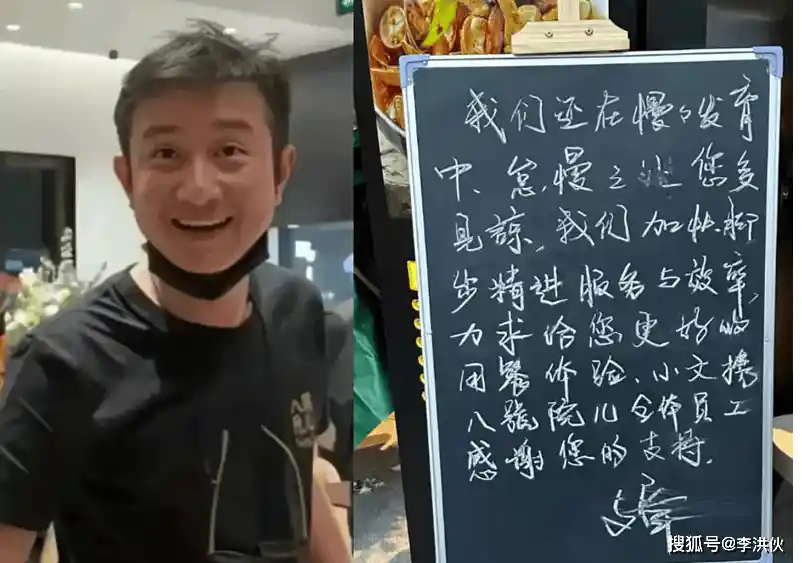 我们还在慢々发育
中、怠慢之处您多
见谅,我们加快脚
步精进服务与效率,
力求给您更好的
用餐体验.小文携
八號院儿全体员工
感谢您的支持.
搜狐号@李洪伙